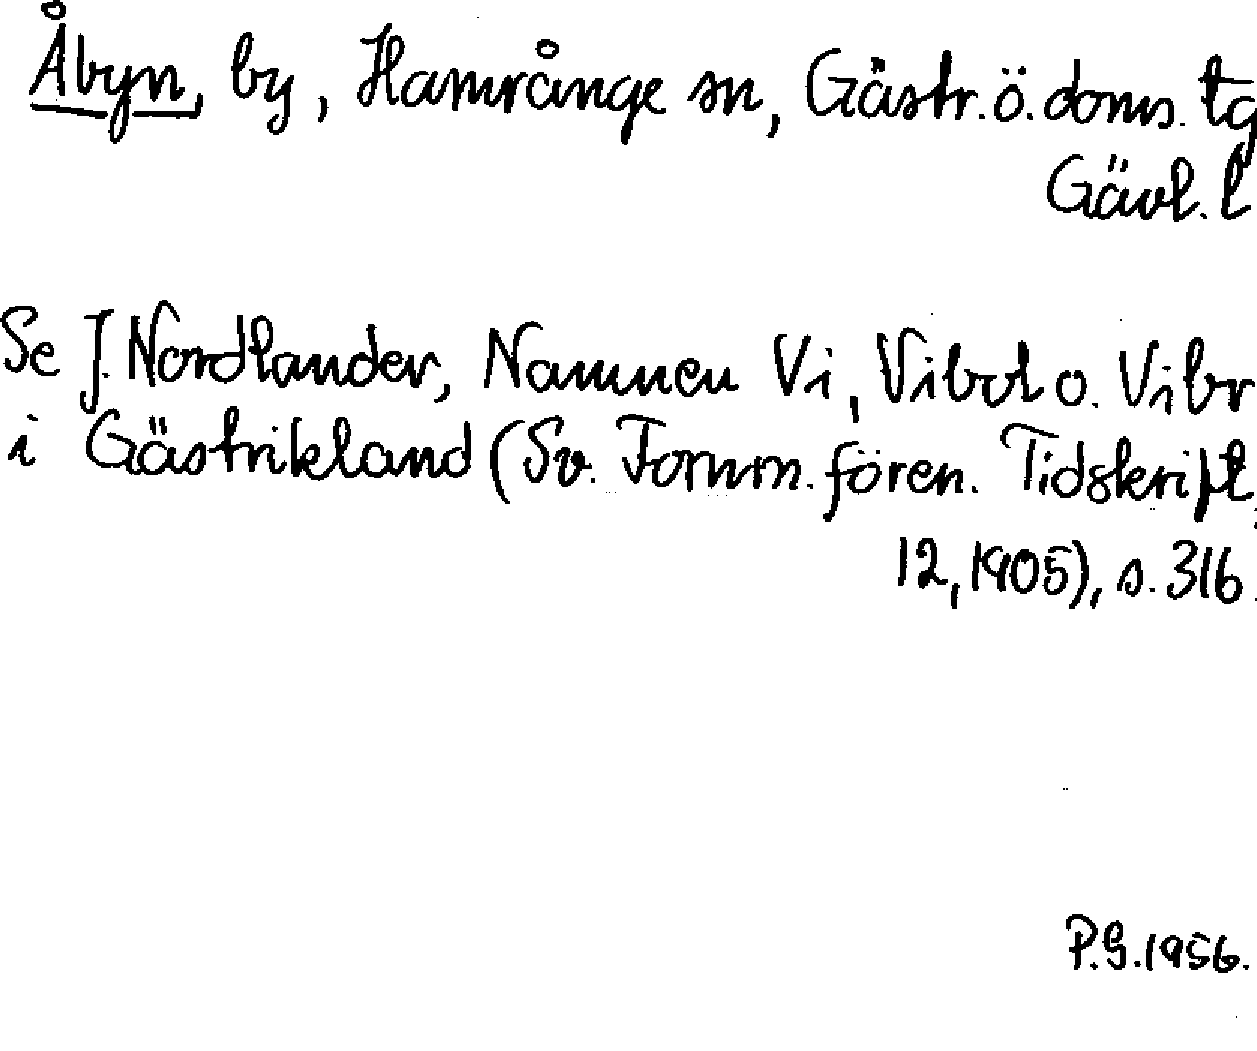 Åbyn, by, Hamrånge sn, Gästr.ö.doms.tg
Gävl.l
Se J. Nordlander, Namnen Vi, Vibol o. Vibr
i Gästrikland (Sv. Fornm.fören. Tidskrift
12,1905), s.316.
P.G.1956.